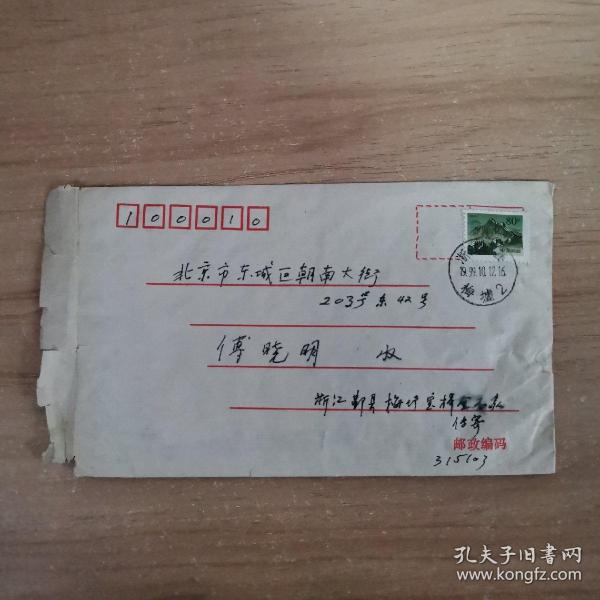 100010
80分
1999.10.12.16
梅墟2
北京市东城区朝南大街
203号东42号
傅晓明 收
浙江鄞县梅圩
传寄
邮政编码
315103
孔夫子旧书网
www.kongfz.com